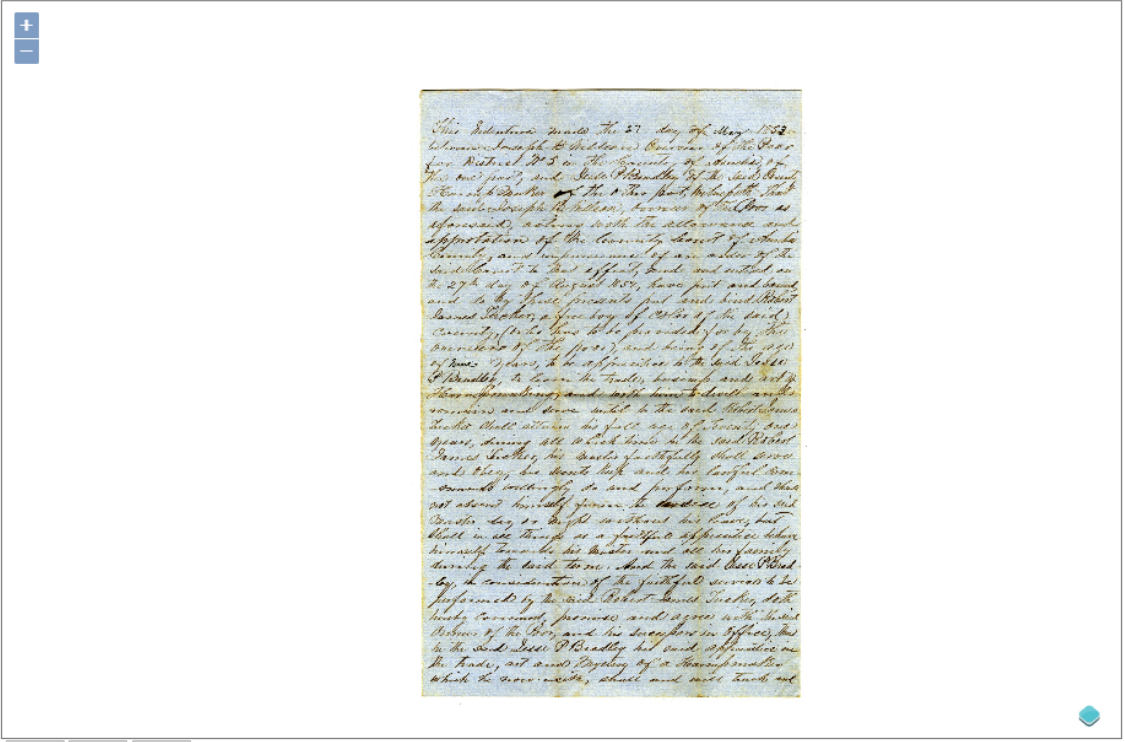 This Indenture made the 27 day of May 1853
between Joseph B Wilson Overseer of the Poor
for District No 5 in the County of Amelia of
the one part, and Jesse P Bradley of the said County
of the other part, Witnesseth, that
the said Joseph B Wilson, overseer of the Poor as
aforesaid, acting with the allowance and
approbation of the County Court of Amelia
County, and in pursuance of an order of the
said Court to that effect, made and entered on
the 27th day of August 1851, have put and bound
and do by these presents put and bind Robert
James Tucker, a free boy of color of the said
County, (who has to be provided for by the
overseers of the poor) and being of the age
of nine years, to be apprentice to the said Jesse
P Bradley, to learn the trade, and art of
Harnessmaking, and with him to dwell and
remain and serve until he the said Robert James
Tucker shall attain his full age of twenty one
years, during all which time he the said Robert
James Tucker, his master faithfully shall serve
and obey, his secrets keep and his lawful com
-mands willingly do and perform, and shall
not absent himself from the service of his said
Master day or night without his leave, but
shall in all things as a faithful apprentice behave
himself towards his Master and all his family
during the said term. And the said Jesse P Brad
-ley, in consideration of the faithful services to be
performed by the said Robert James Tucker, doth
hereby covenant, promise and agree with the said
Overseer of the Poor, and his successors in office, that
he the said Jesse P Bradley his said apprentice in
the trade, art and Mystery of a Harnessmaker
which he now uses, shall and will teach and